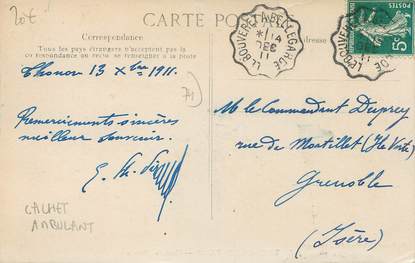 20€
CARTE POSTALE
Correspondance
Tous les pays étrangers n'acceptent pas la
correspondance au recto, se renseigner à la poste
Adresse
LE BOUVERET A BELLEGARDE
5c
Thonon 13 Xbre 1911.
71
Remerciements sincères
meilleur souvenir.
CACHET
AMBULANT
M. le Commandant Duprey
rue de Mortillet (Ile Verte)
Grenoble
(Isère)